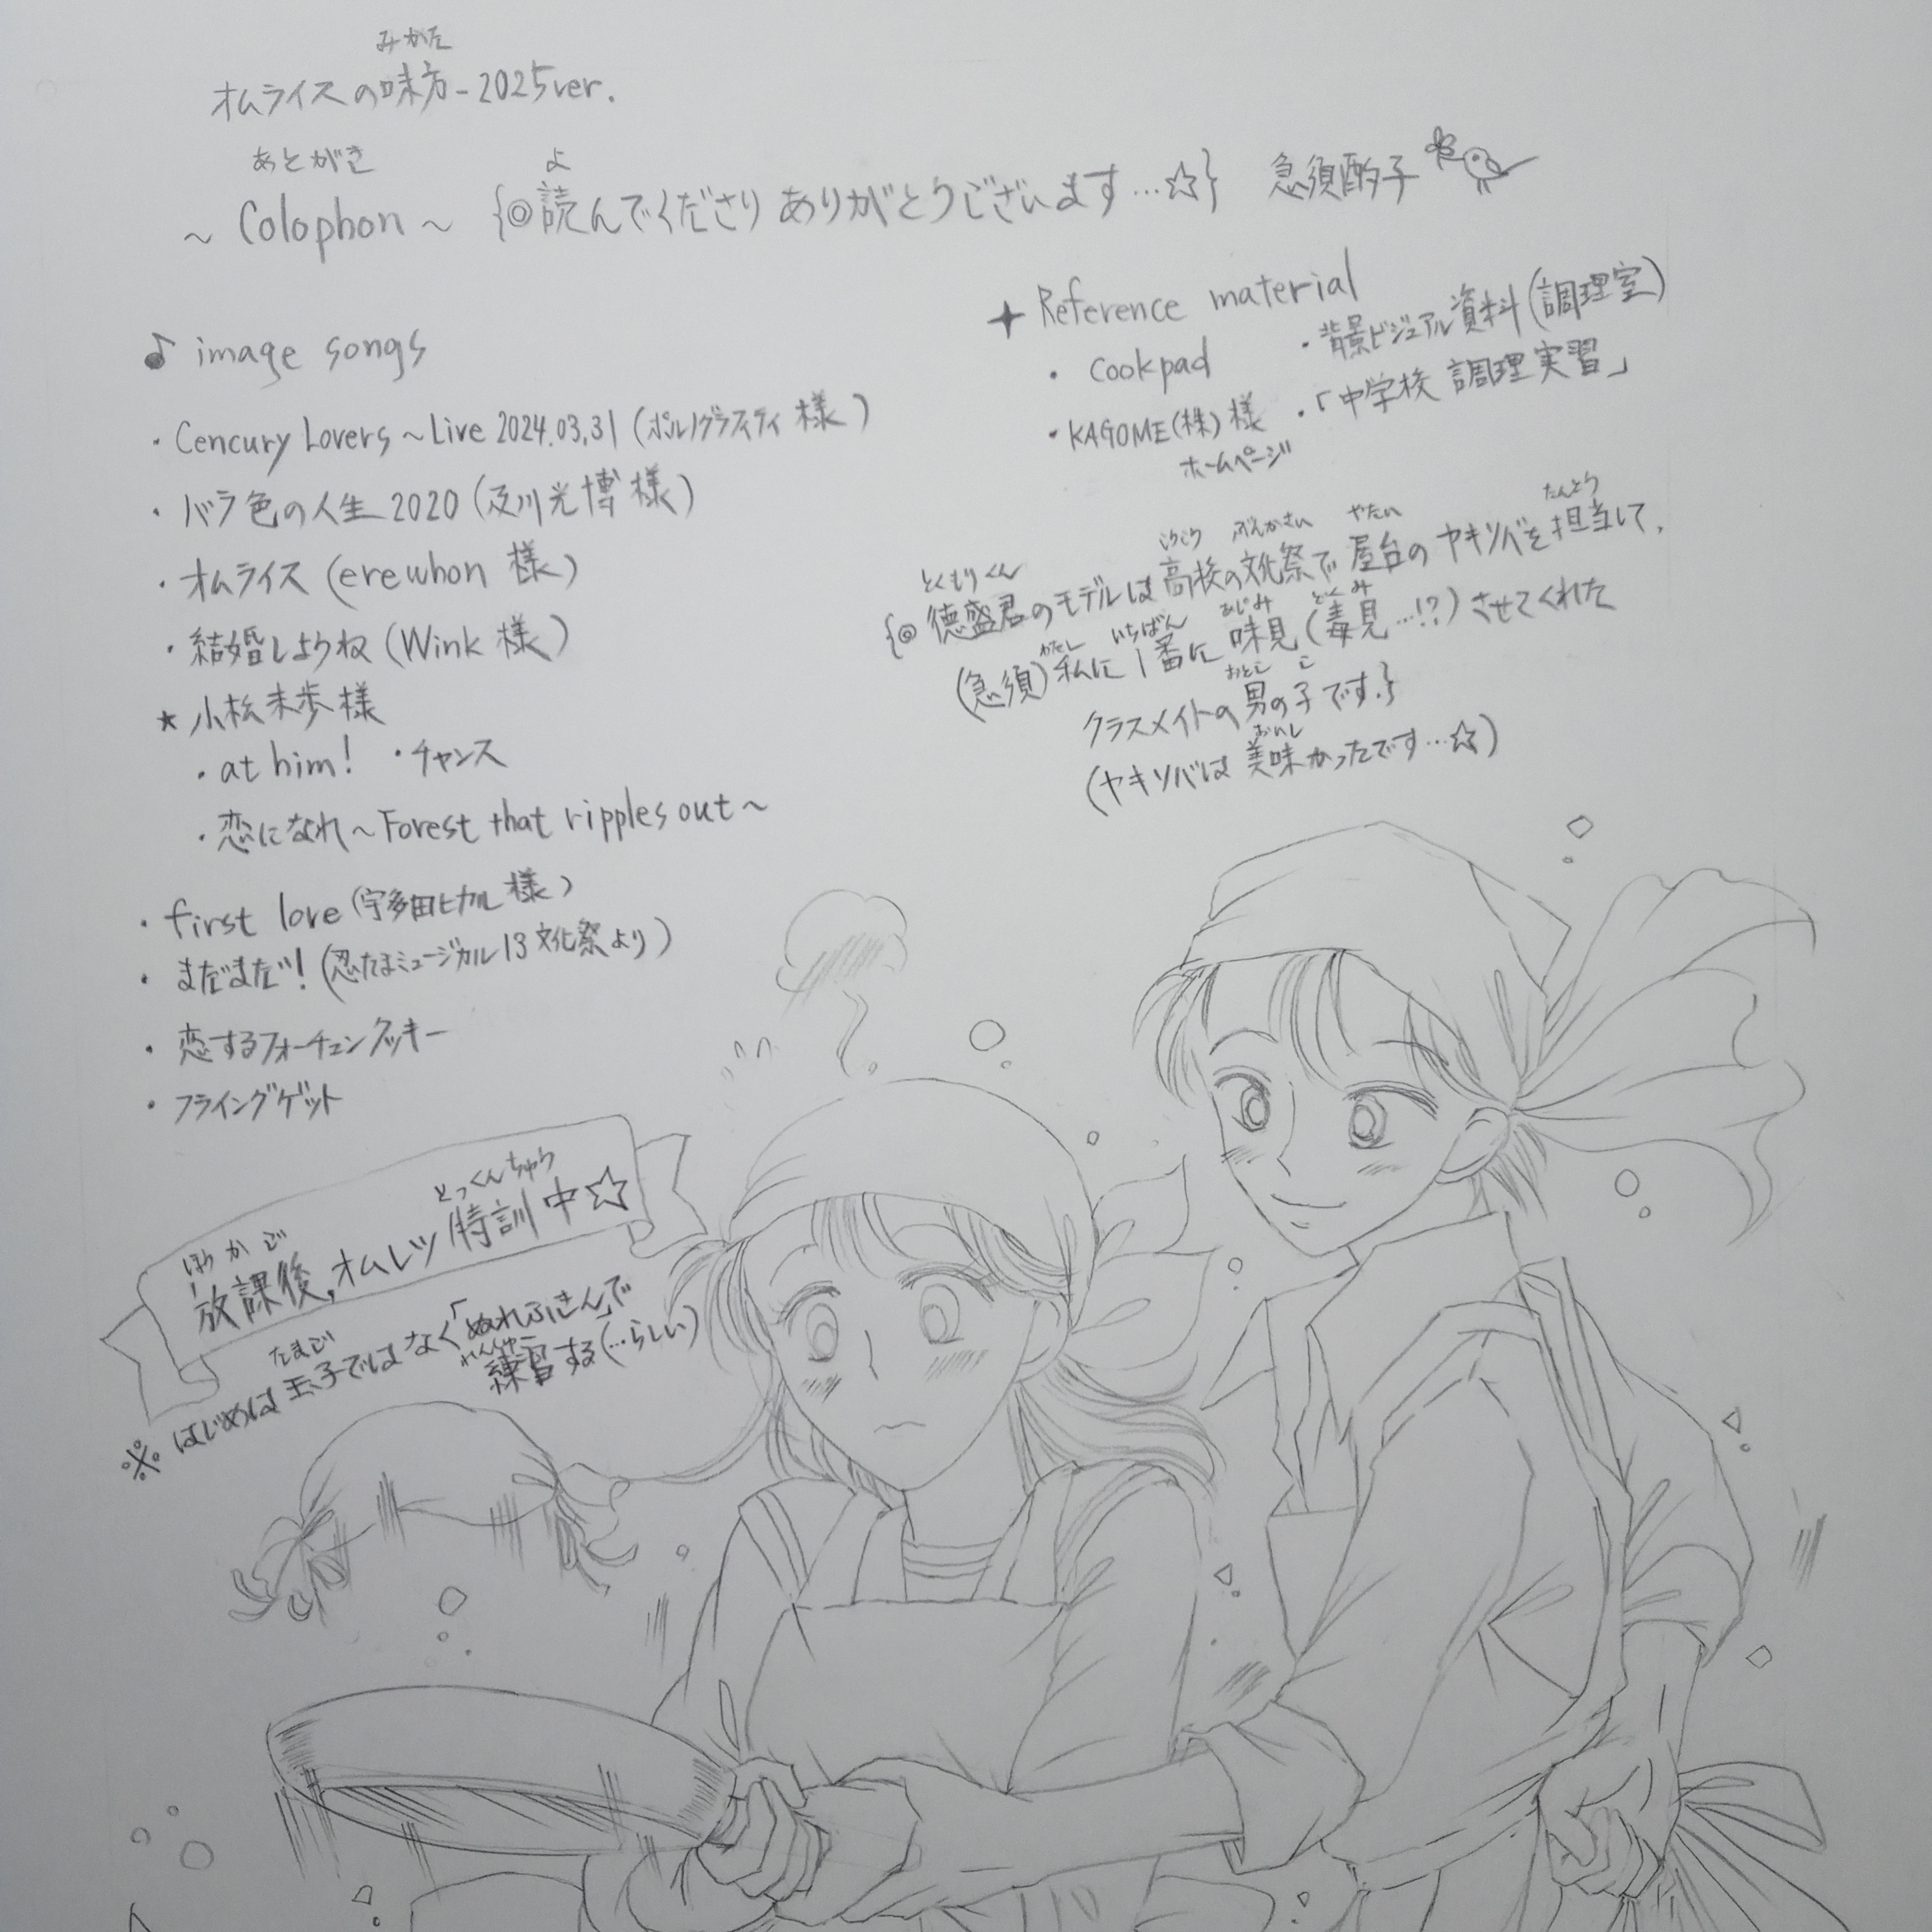 みかた
オムライスの味方-2025ver.
あとがき
～Colophon～
よ
{◎読んでくださりありがとうございます…☆}
急須酌子
♪ image songs
・Cencury Lovers～Live 2024.03.31(ポルノグラフィティ様)
・バラ色の人生2020(及川光博様)
・オムライス(erewhon様)
・結婚しようね(Wink様)
★小松未歩様
・at him! ・チャンス
・恋になれ～Forest that ripples out～
・first love(宇多田ヒカル様)
・まだまだ!(忍たまミュージカル13文化祭より)
・恋するフォーチュンクッキー
・フライングゲット
✦ Reference material
・cookpad
・背景ビジュアル資料(調理室)
・KAGOME(株)様
ホームページ
・「中学校 調理実習」
とくもりくん こうこう ぶんかさい やたい たんとう
{◎徳盛君のモデルは高校の文化祭で屋台のヤキソバを担当して,
わたし いちばん あじみ どくみ
(急須)私に1番に味見(毒見…!?)させてくれた
おとこ こ
クラスメイトの男の子です.}
おいし
(ヤキソバは美味かったです…☆)
ほうかご とっくんちゅう
放課後,オムレツ特訓中☆
たまご
※はじめは玉子ではなく「ぬれふきん」で
れんしゅー
練習する(…らしい)